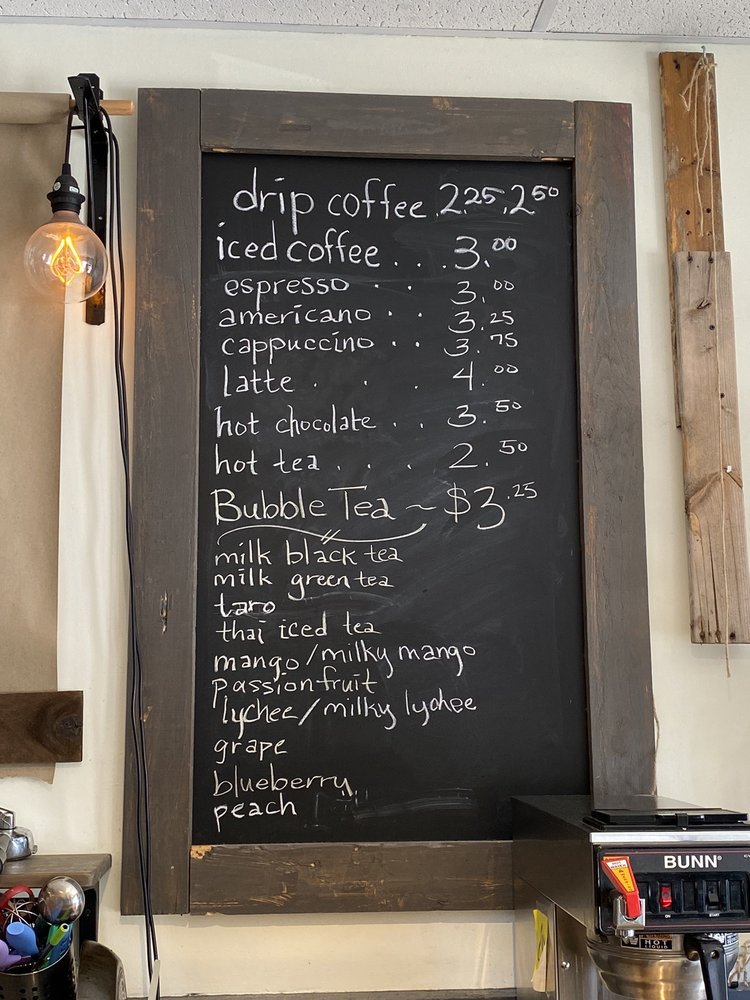 drip coffee 2.25, 2.50
iced coffee . . . 3.00
espresso . . 3.00
americano . . 3.25
cappuccino . . 3.75
latte . . . 4.00
hot chocolate . . 3.50
hot tea . . . 2.50
Bubble Tea ~ $3.25
milk black tea
milk green tea
taro
thai iced tea
mango/milky mango
passionfruit
lychee/milky lychee
grape
blueberry
peach
BUNN
ON
START
HOT
LIQUID